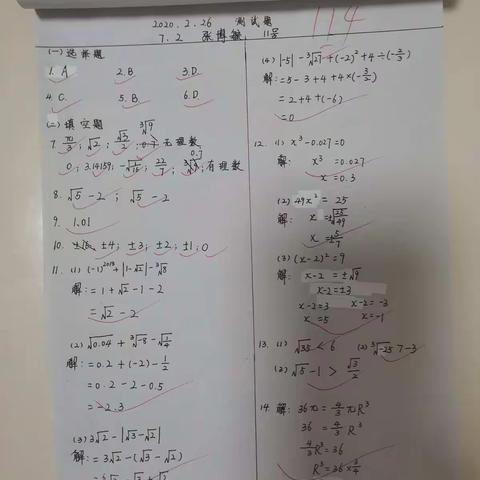 2020.2.26 测试题
114
7.2 张博 11号
(一)选择题
1. A 2. B 3. D
4. C. 5. B 6. D
(二)填空题
7. π/3; √2; √2/2; ∛9 无理数
0; 3.14159; -√(1/15); 22/7; 0.7 有理数
8. √5-2; √5-2
9. 1.01
10. ±4; ±3; ±2; ±1; 0
11. (1) (-1)²⁰¹⁸+|1-√2|-∛8
解:=1+√2-1-2
=√2-2
(2) √0.04+∛-8-√(1/4)
解:=0.2+(-2)-1/2
=0.2-2-0.5
=-2.3
(3) 3√2-|√3-√2|
解:=3√2-(√3-√2)
=3√2-√3+√2
(4) |-5|-∛27+(-2)²+4÷(-2/3)
解:=5-3+4+4×(-3/2)
=2+4+(-6)
=0
12. (1) x³-0.027=0
解: x³=0.027
x=0.3
(2) 49x²=25
解: x=±√(25/49)
x=±5/7
(3) (x-2)²=9
解: x-2=±√9
x-2=±3
x-2=3 x-2=-3
x=5 x=-1
13. (1) √35<6 (2) ∛-25>-3
(3) √5-1>√3/2
14. 解: 36π=4/3πR³
36=4/3R³
4/3R³=36
R³=36×3/4